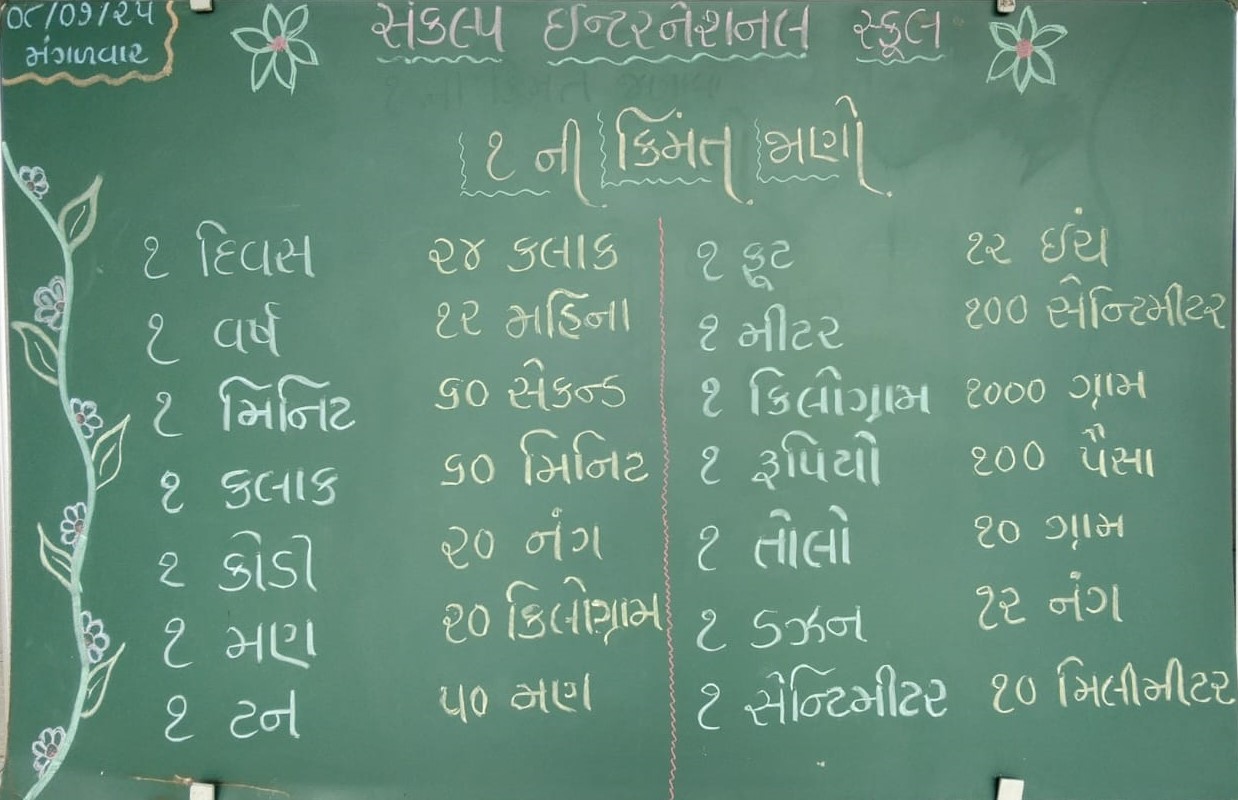 ૦૮/૦૭/૨૫
મંગળવાર
સંકલ્પ ઈન્ટરનેશનલ સ્કૂલ
૧ ની કિમંત જાણો
૧ દિવસ ૨૪ કલાક
૧ વર્ષ ૧૨ મહિના
૧ મિનિટ ૬૦ સેકન્ડ
૧ કલાક ૬૦ મિનિટ
૧ કોડી ૨૦ નંગ
૧ મણ ૨૦ કિલોગ્રામ
૧ ટન ૫૦ મણ
૧ ફૂટ ૧૨ ઈંચ
૧ મીટર ૧૦૦ સેન્ટિમીટર
૧ કિલોગ્રામ ૧૦૦૦ ગ્રામ
૧ રૂપિયો ૧૦૦ પૈસા
૧ તોલો ૧૦ ગ્રામ
૧ ડઝન ૧૨ નંગ
૧ સેન્ટિમીટર ૧૦ મિલીમીટર